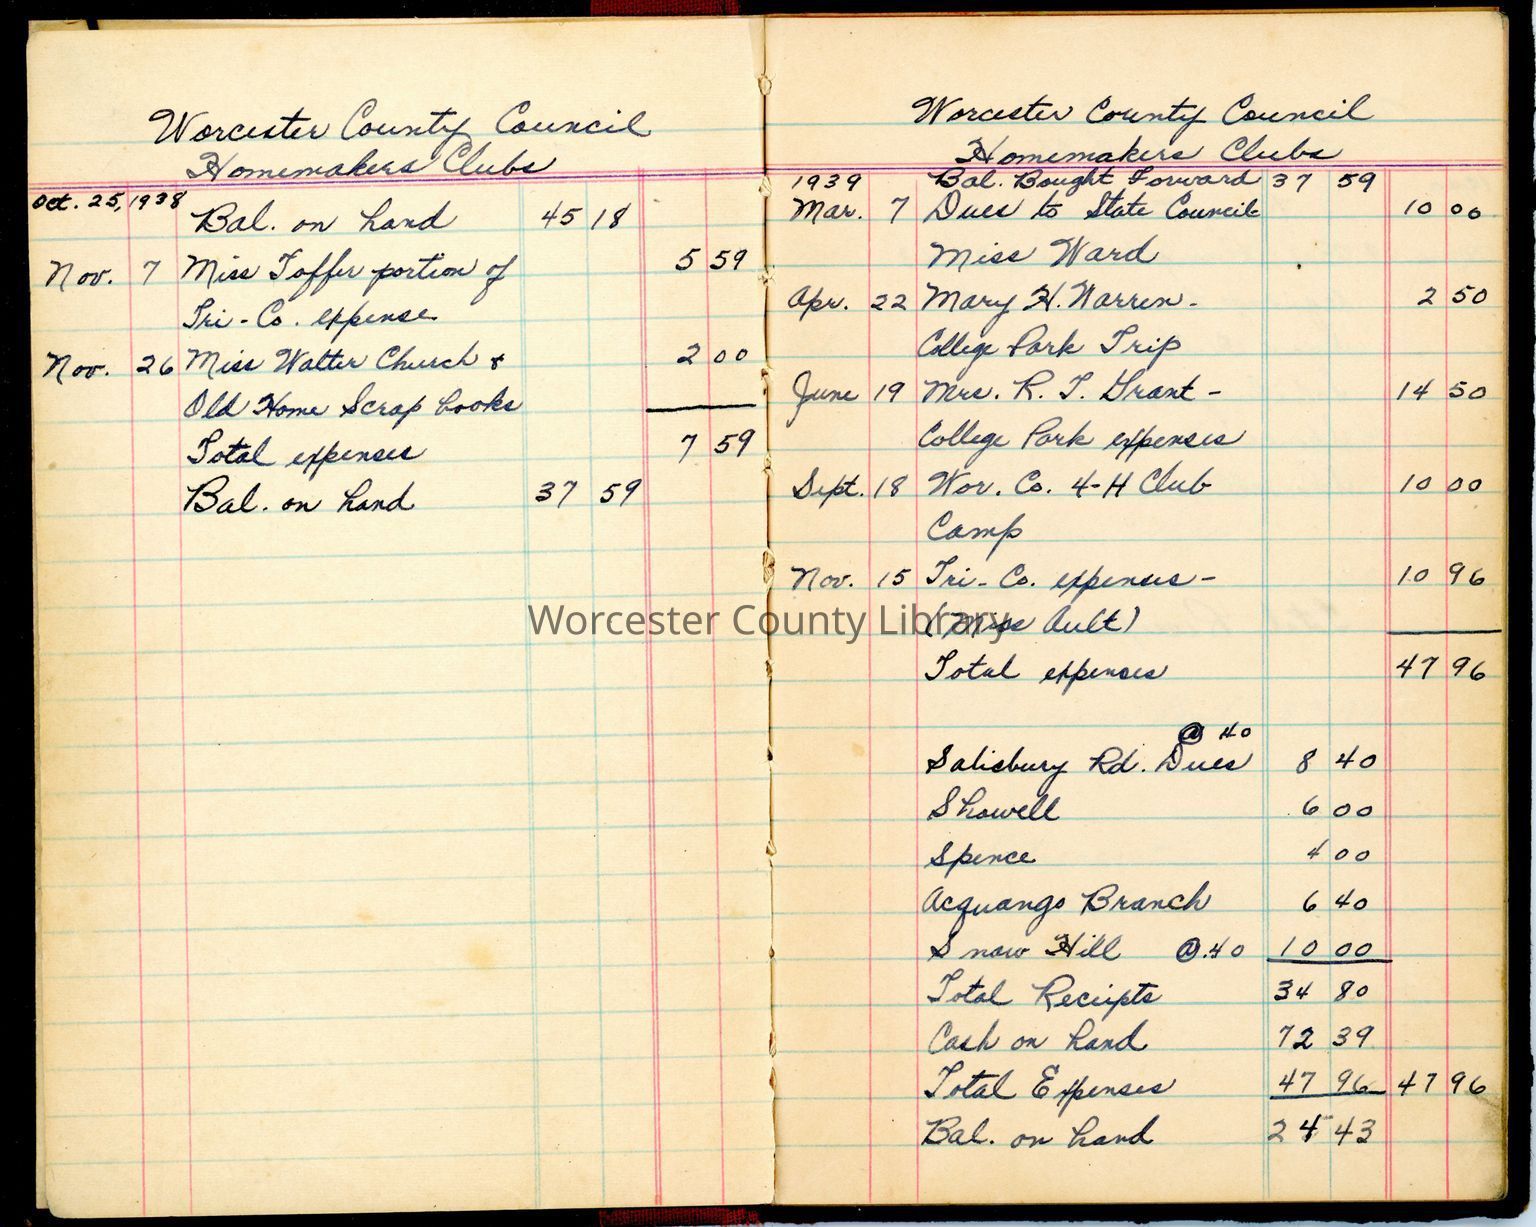 Worcester County Council
Homemakers Clubs
Oct. 25, 1938
Bal. on hand 45 18
Nov. 7 Miss Toffer portion of 5 59
Tri-Co. expense
Nov. 26 Miss Walter Church & 2 00
Old Home Scrap books
Total expenses 7 59
Bal. on hand 37 59
Worcester County Council
Homemakers Clubs
1939 Bal. Bought Forward 37 59
Mar. 7 Dues to State Council 10 00
Miss Ward
Apr. 22 Mary H. Warren- 2 50
College Park Trip
June 19 Mrs. R. T. Grant- 14 50
College Park expenses
Sept. 18 Wor. Co. 4-H Club 10 00
Camp
Nov. 15 Tri-Co. expenses- 10 96
(Miss Ault)
Total expenses 47 96
@ 40
Salisbury Rd. Dues 8 40
Showell 6 00
Spence 4 00
Acquango Branch 6 40
Snow Hill @.40 10 00
Total Receipts 34 80
Cash on hand 72 39
Total Expenses 47 96 47 96
Bal. on hand 24 43
Worcester County Library